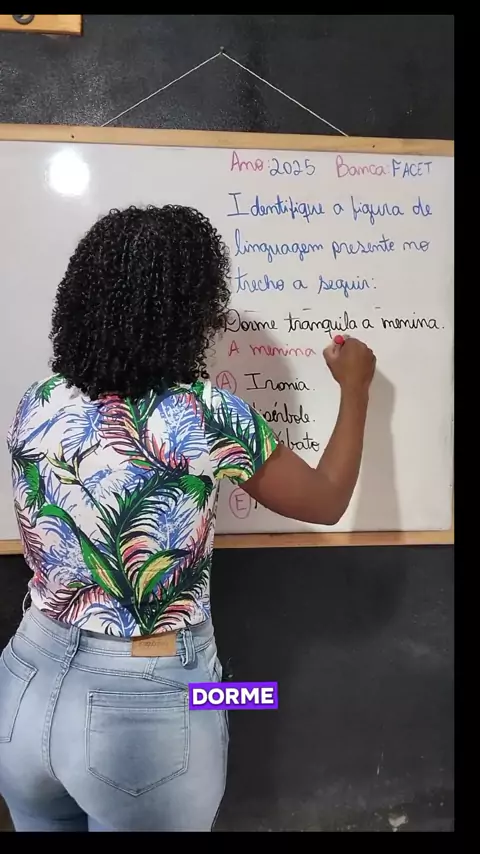 Ano: 2025 Banca: FACET
Identifique a figura de
linguagem presente no
trecho a seguir:
Dorme tranquila a menina.
A menina
A Ironia.
E
DORME